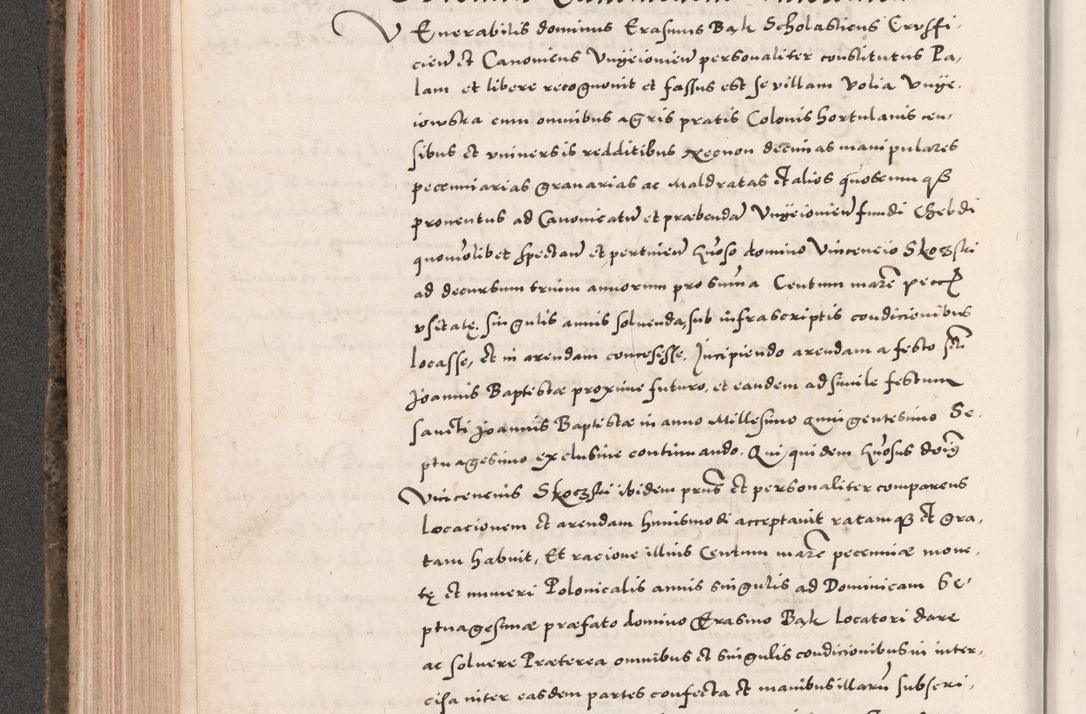 Venerabilis dominus Erasmus Bąk Scholasticus Crusfi-
cien et Canonicus Unyeiovien personaliter constitutus Pa-
lam et libere recognovit et fassus est se villam Volia Unye-
iowska cum omnibus agris pratis Colonis hortulanis cen-
sibus et universis redditibus Necnon decimas manipulares
pecuniarias Granarias ac Maldratas et alios quoscumq
proventus ad Canonicatu et præbenda Unyeiovien fundi Cheldi
quomolibet spectan et pertinen Gnoso domino Vincencio Skoczski
ad decursum trium annorum pro suma Centum marc pecc
usitatę, singulis annis solvenda, sub infrascriptis condicionibus
locasse, et in arendam concesisse, Incipiendo arendam a festo scti
Joannis Baptistæ proxime futuro, et eandem ad simile festum
Sancti Joannis Baptistæ in anno Millesimo quingentesimo Se-
ptuagesimo exclusive continuando. Qui quidem Gnosus dom
Vincencius Skoczski ibidem prns et personaliter comparens
Locacionem et arendam huiusmodi acceptavit ratamq et gra-
tam habuit, Et racione illius Centum marc pecuniæ mone-
tę et numeri Polonicalis annis singulis ad Dominicam Se-
ptuagesimæ præfato domino Erasmo Bąk Locatori dare
ac solvere Præterea omnibus et singulis condicionibus in inter-
cisa inter easdem partes confecta et manibus illarum subscri-